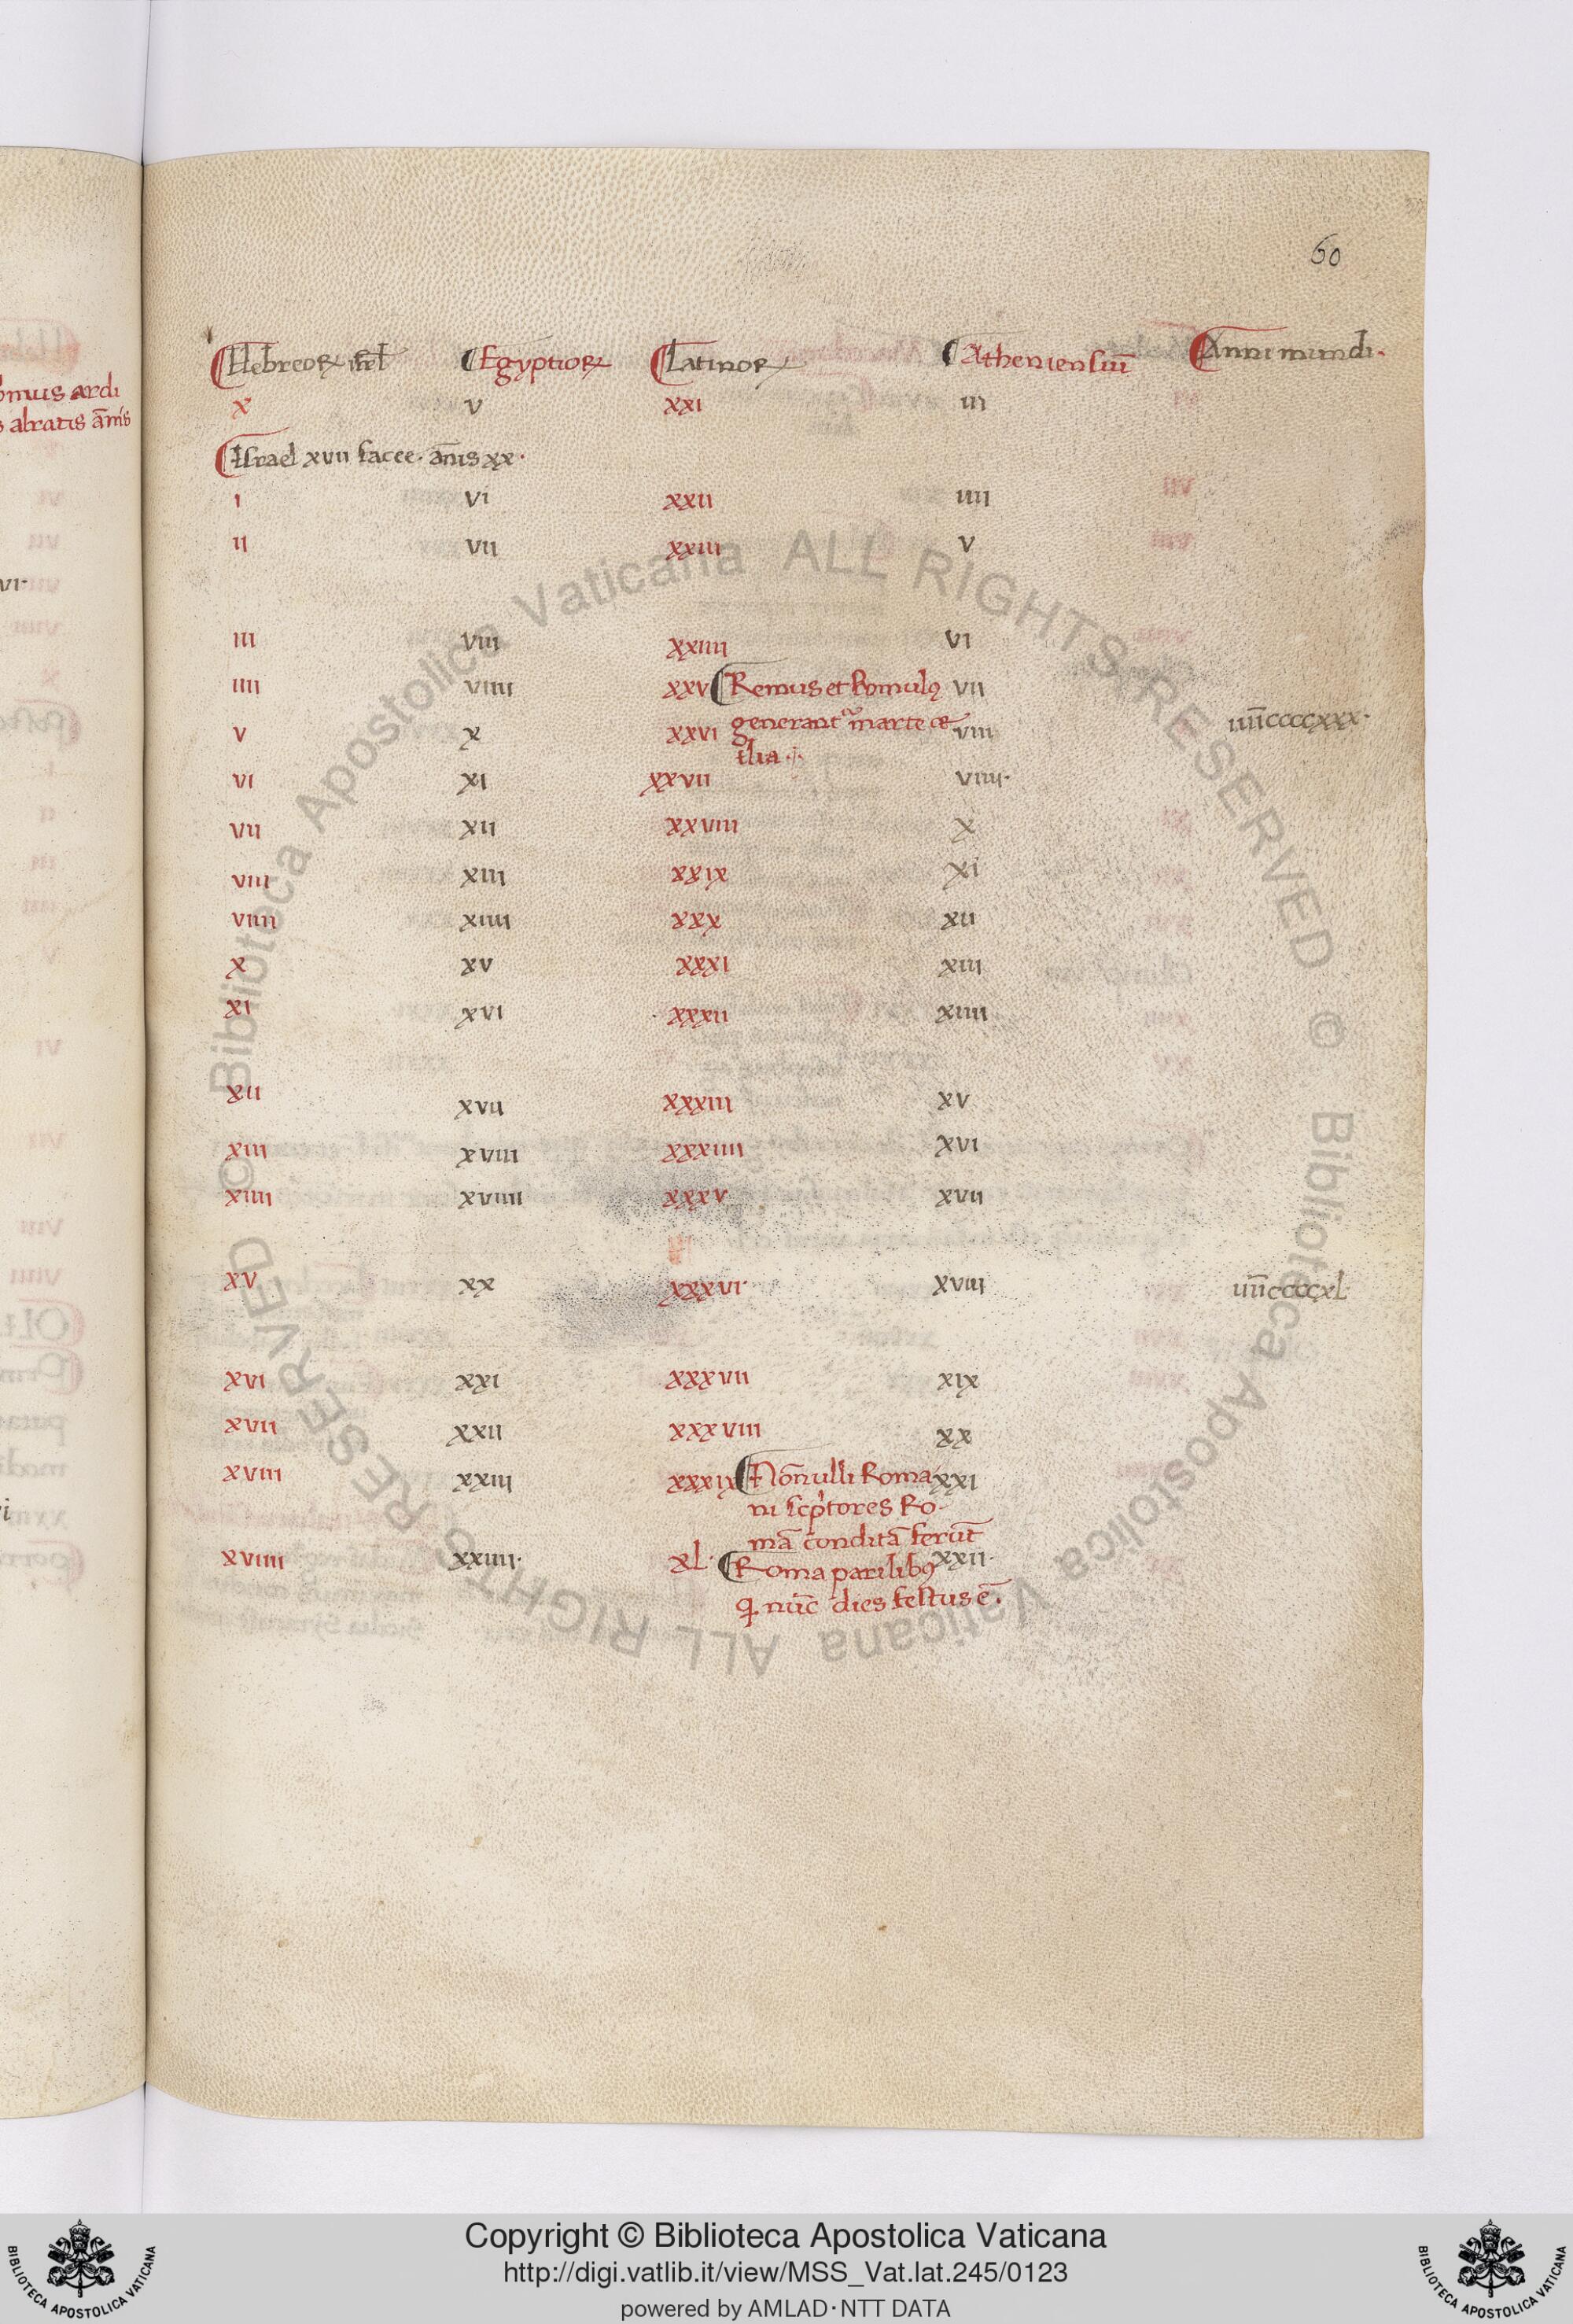 60
Hebreoꝝ isrl Egyptioꝝ Latinoꝝ Atheniensiū Anni mundi.
onius ardi
x v xxi iii
s abratis ān̄is
Israel xvii facee. ānis xx.
i vi xxii iiii
ii vii xxiii v
vi.
iii viii xxiiii vi
iiii viiii xxv Remus et Romulꝰ vii
generant᷑ marte et iiiiccccxxx.
v x xxvi viii
ilia.
vi xi xxvii viiii.
vii xii xxviii x
viii xiii xxix xi
viiii xiiii xxx xii
x xv xxxi xiii
xi xvi xxxii xiiii
xii xvii xxxiii xv
xiii xviii xxxiiii xvi
xiiii xviiii xxxv xvii
xv xx xxxvi. xviii iiiiccccxl.
xvi xxi xxxvii xix
xvii xxii xxxviii xx
xviii xxiii xxxix Nōnulli Roma xxi
ni scp̄tores Ro-
mā conditā ferūt
xviiii xxiiii. xl. Roma parilibꝰ xxii.
q nūc dies festus ē.
© Biblioteca Apostolica Vaticana ALL RIGHTS RESERVED © Biblioteca Apostolica Vaticana ALL RIGHTS RESERVED
Copyright © Biblioteca Apostolica Vaticana
http://digi.vatlib.it/view/MSS_Vat.lat.245/0123
powered by AMLAD·NTT DATA
BIBLIOTECA APOSTOLICA VATICANA
BIBLIOTECA APOSTOLICA VATICANA